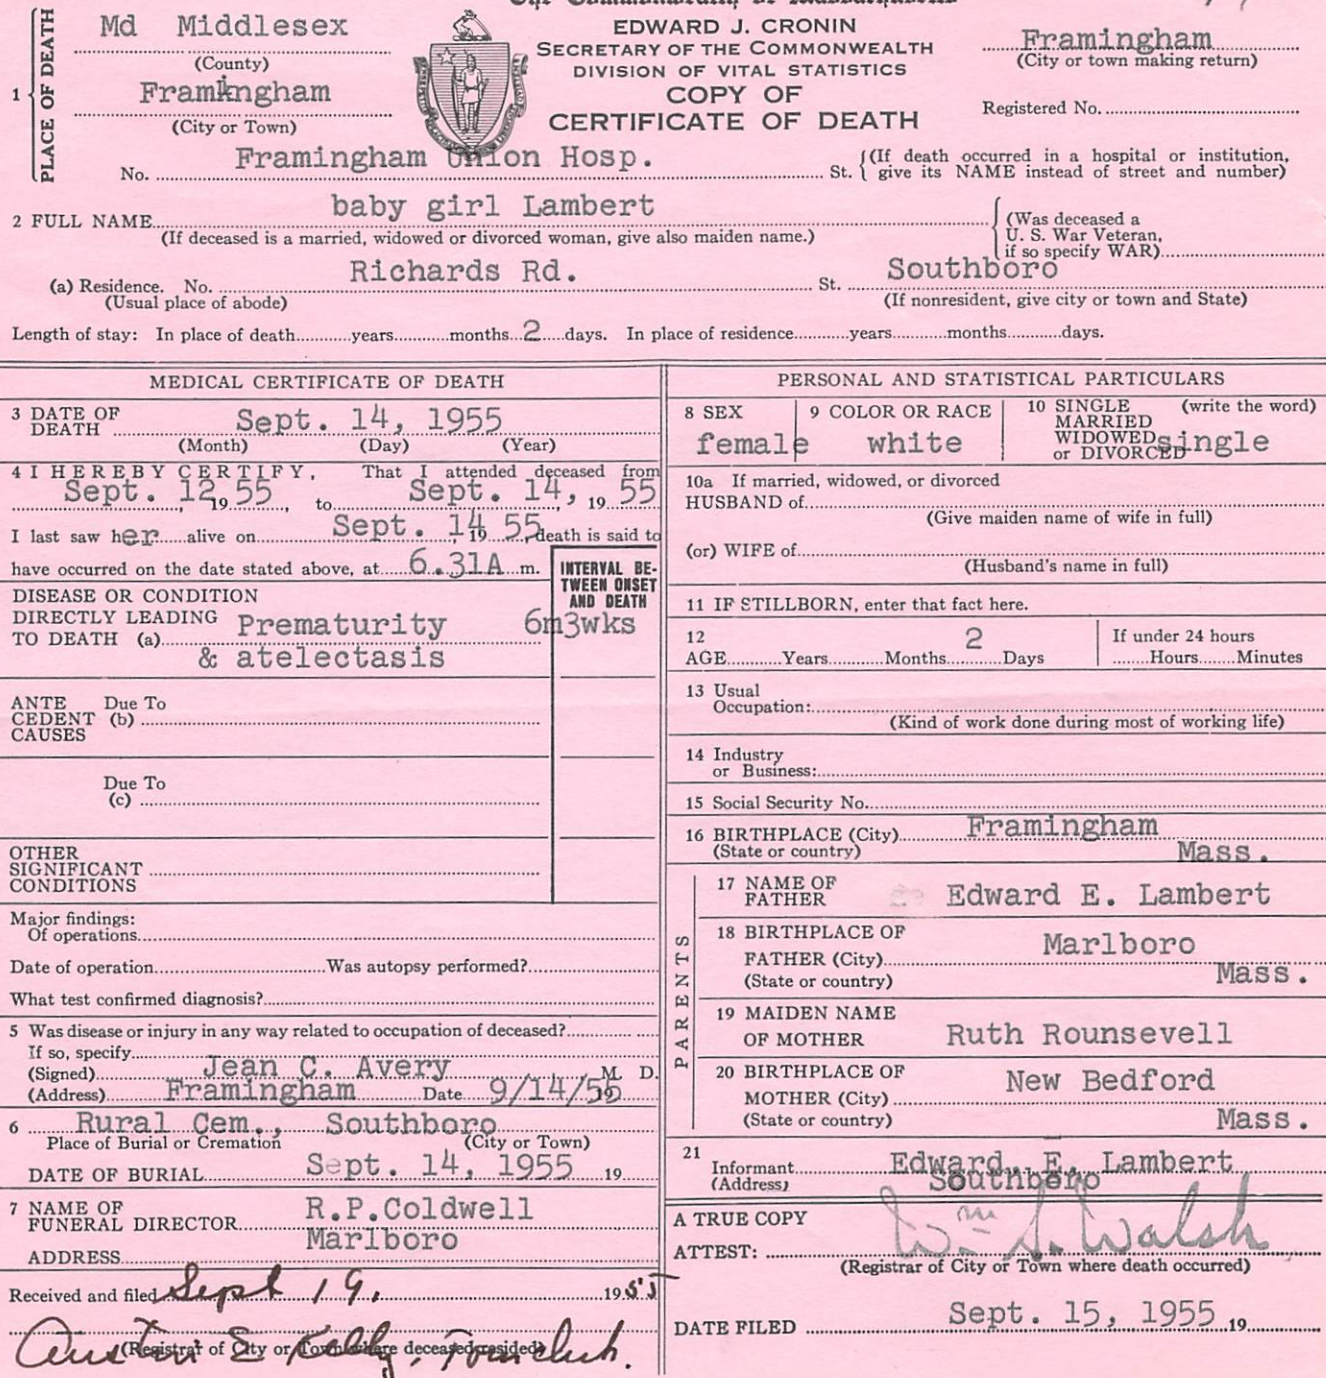 The Commonwealth of Massachusetts
EDWARD J. CRONIN
SECRETARY OF THE COMMONWEALTH
DIVISION OF VITAL STATISTICS
COPY OF
CERTIFICATE OF DEATH
1 PLACE OF DEATH
Md Middlesex
(County)
Framingham
(City or Town)
Framingham
(City or town making return)
Registered No.
No. Framingham Union Hosp. St. (If death occurred in a hospital or institution,
give its NAME instead of street and number)
2 FULL NAME baby girl Lambert
(If deceased is a married, widowed or divorced woman, give also maiden name.)
(Was deceased a
U. S. War Veteran,
if so specify WAR)
(a) Residence. No. Richards Rd. St. Southboro
(Usual place of abode) (If nonresident, give city or town and State)
Length of stay: In place of death years months 2 days. In place of residence years months days.
MEDICAL CERTIFICATE OF DEATH
3 DATE OF
DEATH Sept. 14, 1955
(Month) (Day) (Year)
4 I HEREBY CERTIFY, That I attended deceased from
Sept. 12, 19 55, to Sept. 14, 19 55
I last saw her alive on Sept. 14, 19 55, death is said to
have occurred on the date stated above, at 6.31A m.
INTERVAL BE-
TWEEN ONSET
AND DEATH
DISEASE OR CONDITION
DIRECTLY LEADING
TO DEATH (a) Prematurity 6m3wks
& atelectasis
ANTE Due To
CEDENT (b)
CAUSES
Due To
(c)
OTHER
SIGNIFICANT
CONDITIONS
Major findings:
Of operations
Date of operation Was autopsy performed?
What test confirmed diagnosis?
5 Was disease or injury in any way related to occupation of deceased?
If so, specify
(Signed) Jean C. Avery M. D.
(Address) Framingham Date 9/14/55 19
6 Rural Cem., Southboro
Place of Burial or Cremation (City or Town)
DATE OF BURIAL Sept. 14, 1955 19
7 NAME OF
FUNERAL DIRECTOR R.P.Coldwell
ADDRESS Marlboro
Received and filed Sept 19, 1955
Austin E Kelly, Town Clerk.
(Registrar of City or Town where deceased resided)
PERSONAL AND STATISTICAL PARTICULARS
8 SEX
female
9 COLOR OR RACE
white
10 SINGLE (write the word)
MARRIED
WIDOWED single
or DIVORCED
10a If married, widowed, or divorced
HUSBAND of
(Give maiden name of wife in full)
(or) WIFE of
(Husband's name in full)
11 IF STILLBORN, enter that fact here.
12
AGE Years Months 2 Days
If under 24 hours
Hours Minutes
13 Usual
Occupation:
(Kind of work done during most of working life)
14 Industry
or Business:
15 Social Security No.
16 BIRTHPLACE (City) Framingham
(State or country) Mass.
PARENTS
17 NAME OF
FATHER Edward E. Lambert
18 BIRTHPLACE OF
FATHER (City) Marlboro
(State or country) Mass.
19 MAIDEN NAME
OF MOTHER Ruth Rounsevell
20 BIRTHPLACE OF
MOTHER (City) New Bedford
(State or country) Mass.
21
Informant Edward. E. Lambert
(Address) Southboro
A TRUE COPY
ATTEST: Wm S. Walsh
(Registrar of City or Town where death occurred)
DATE FILED Sept. 15, 1955 19